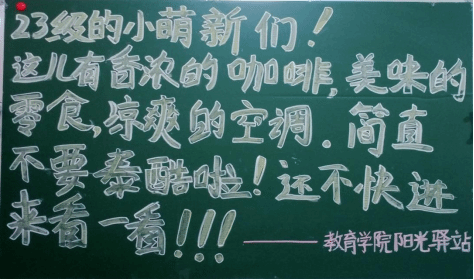 23级的小萌新们!
这儿有香浓的咖啡,美味的
零食,凉爽的空调。简直
不要泰酷啦!还不快进
来看一看!!!
——教育学院阳光驿站